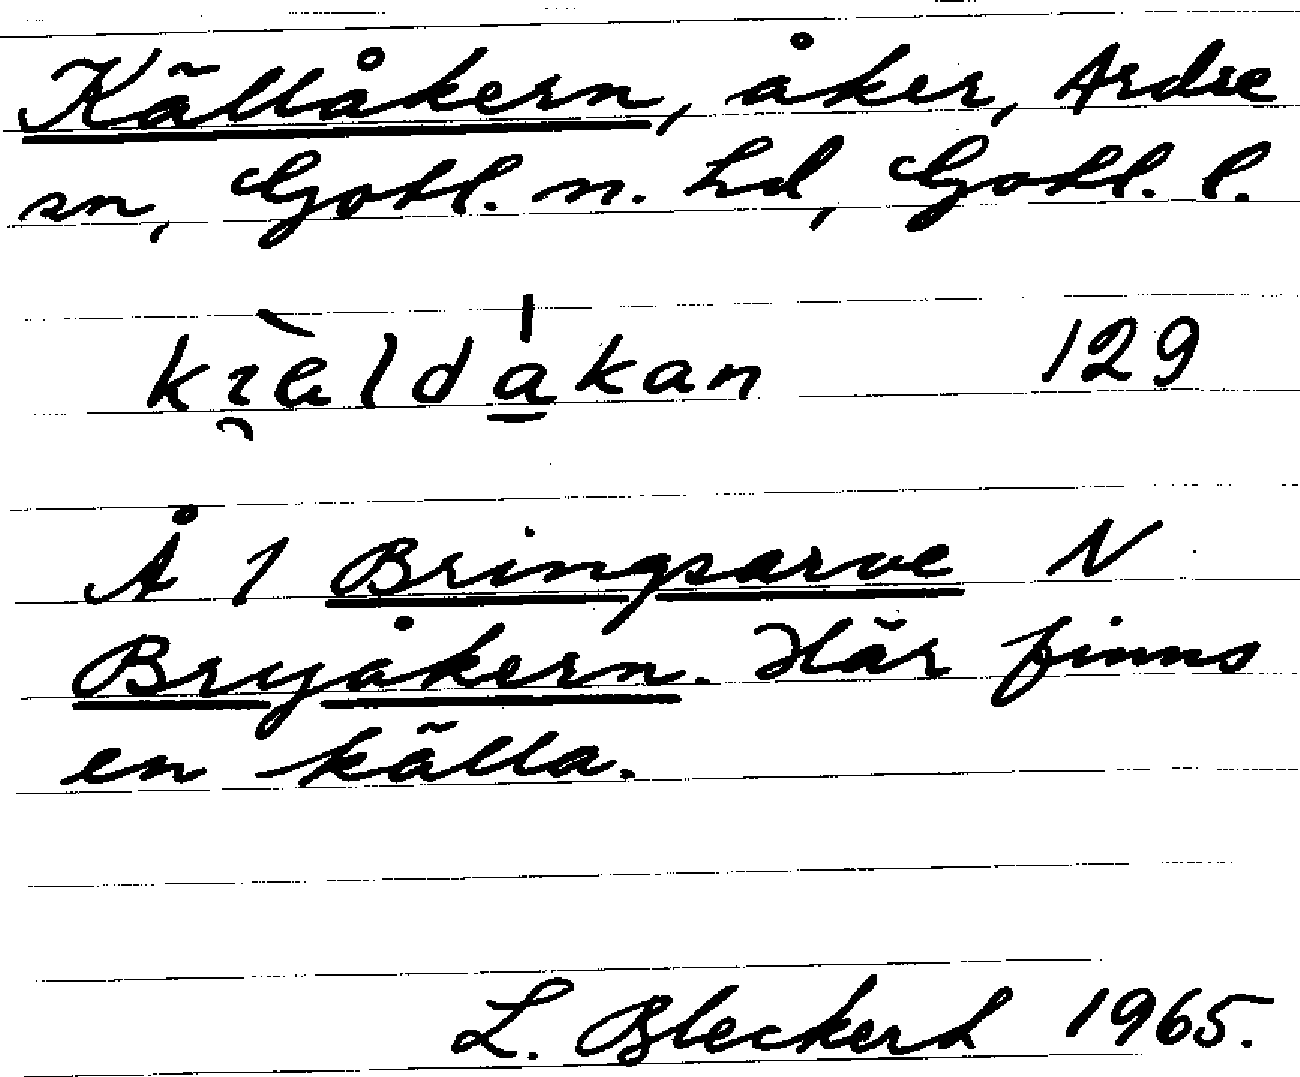 Källåkern, åker, Ardre
sn, Gotl. n. hd, Gotl. l.
kı̯æ̀lda̲̍kan 129
Å 1 Bringsarve N
Bryåkern. Här finns
en källa.
L. Bleckert 1965.